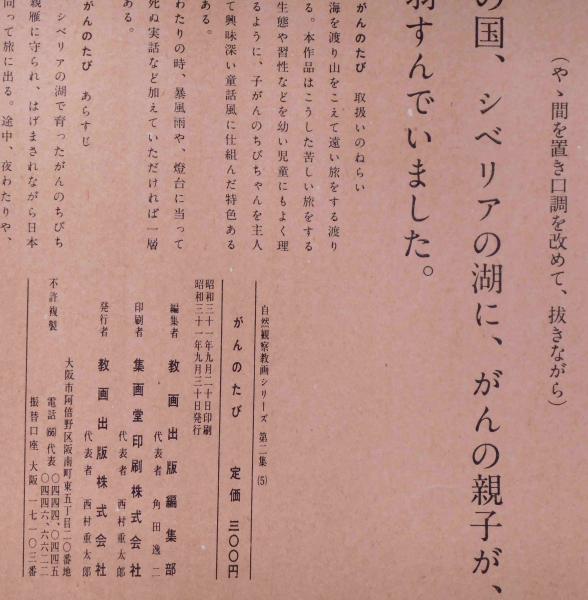 （やゝ間を置き口調を改めて、抜きながら）
の国、シベリアの湖に、がんの親子が、
羽すんでいました。
がんのたび　取扱いのねらい
海を渡り山をこえて遠い旅をする渡り
る。本作品はこうした苦しい旅をする
生態や習性などを幼い児童にもよく理
るように、子がんのちびちゃんを主人
て興味深い童話風に仕組んだ特色ある
ある。
わたりの時、暴風雨や、燈台に当って
死ぬ実話など加えていただければ一層
ある。
がんのたび　あらすじ
シベリアの湖で育ったがんのちびち
親雁に守られ、はげまされながら日本
向って旅に出る。途中、夜わたりや、
自然観察教画シリーズ　第二集（5）
がんのたび　定価　三〇〇円
昭和三十一年九月二十日印刷
昭和三十一年九月三十日発行
編集者　教画出版編集部
代表者　角田逸二
印刷者　集画堂印刷株式会社
代表者　西村重太郎
発行者　教画出版株式会社
代表者　西村重太郎
大阪市阿倍野区阪南町東五丁目二〇番地
不許複製　電話(66)代表〇四四四、〇四四五
〇四四六、六六二二
振替口座　大阪　一七一〇三番